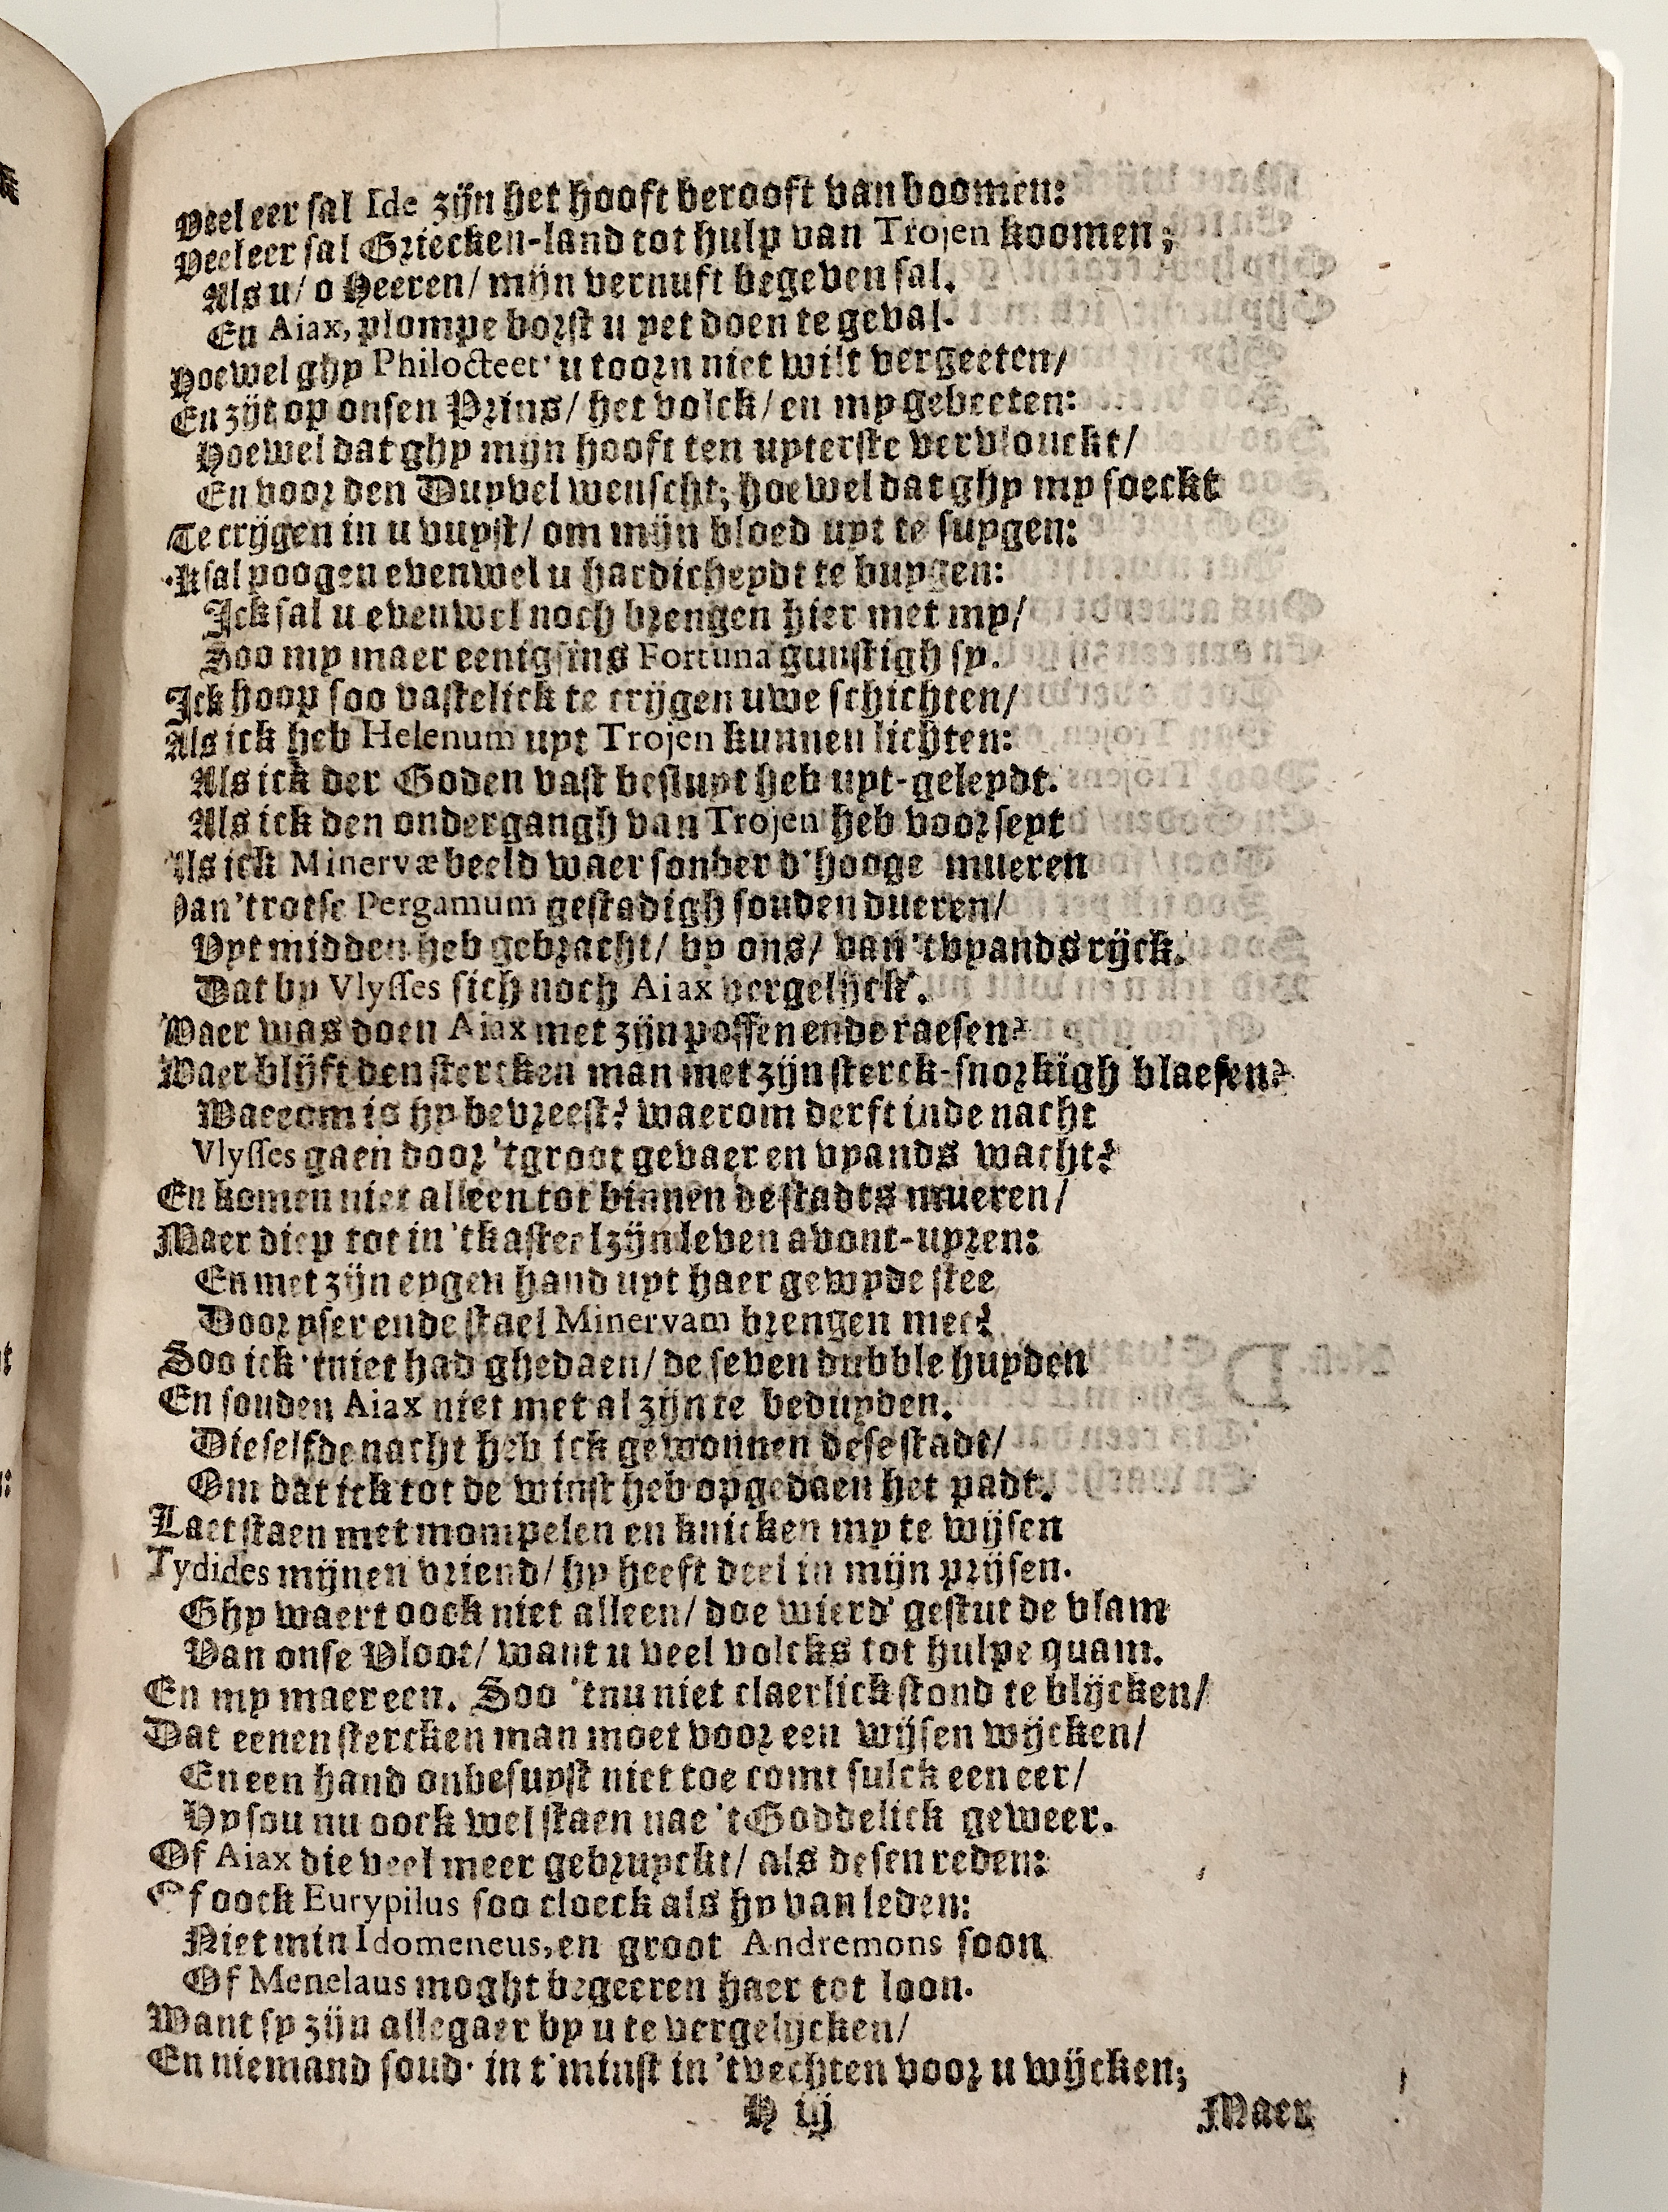 Veel eer sal Ide zijn het hooft berooft van boomen:
Veel eer sal Griecken-land tot hulp van Trojen koomen;
Als u/ o Heeren/ mijn vernuft begeven sal.
En Aiax, plompe borst u yet doen te geval.
Hoewel ghy Philocteet' u toorn niet wilt vergeeten/
En zijt op onsen Prins/ het volck/ en my gebeeten:
Hoewel dat ghy mijn hooft ten uyterste vervlouckt/
En voor den Duyvel wenscht; hoewel dat ghy my soeckt
Te crijgen in u vuyst/ om mijn bloed uyt te suygen:
'Ksal poogen evenwel u hardicheydt te buygen:
Ick sal u evenwel noch brengen hier met my/
Soo my maer eenigsins Fortuna gunstigh sy.
Ick hoop soo vastelick te crijgen uwe schichten/
Als ick heb Helenum uyt Trojen kunnen lichten:
Als ick der Goden vast besluyt heb uyt-geleydt.
Als ick den ondergangh van Trojen heb voorseyt
Als ick Minervæ beeld waer sonder d'hooge mueren
Van 'trotse Pergamum gestadigh souden dueren/
Uyt midden heb gebracht/ by ons/ van 'tvyands rijck.
Dat by Vlysses sich noch Aiax vergelijck'.
Waer was doen Aiax met zijn poffen ende raesen?
Waer blijft den stercken man met zijn sterck-snorkigh blaesen?
Waerom is hy bevreest? waerom derft inde nacht
Vlysses gaen door 'tgroot gevaer en vyands wacht?
En komen niet alleen tot binnen de stadts mueren/
Maer diep tot in 'tkasteel zijn leven avont-uyren:
En met zijn eygen hand uyt haer gewyde stee
Door yser ende stael Minervam brengen mee?
Soo ick 'tniet had ghedaen/ de seven dubble huyden
En souden Aiax niet met al zijn te beduyden.
Die selfde nacht heb ick gewonnen dese stadt/
Om dat ick tot de winst heb opgedaen het padt.
Laet staen met mompelen en knicken my te wijsen
Tydides mijnen vriend/ hy heeft deel in mijn prijsen.
Ghy waert oock niet alleen/ doe wierd' gestut de vlam
Van onse Vloot/ want u veel volcks tot hulpe quam.
En my maer een. Soo 'tnu niet claerlick stond te blijcken/
Dat eenen stercken man moet voor een wijsen wijcken/
En een hand onbesuyst niet toe comt sulck een eer/
Hy sou nu oock wel staen nae 't Goddelick geweer.
Of Aiax die veel meer gebruyckt/ als desen reden:
Of oock Eurypilus soo cloeck als hy van leden:
Niet min Idomeneus, en groot Andremons soon
Of Menelaus moght begeeren haer tot loon.
Want sy zijn allegaer by u te vergelijcken/
En niemand soud' in t'minst in 'tvechten voor u wijcken;
H iij
Maer